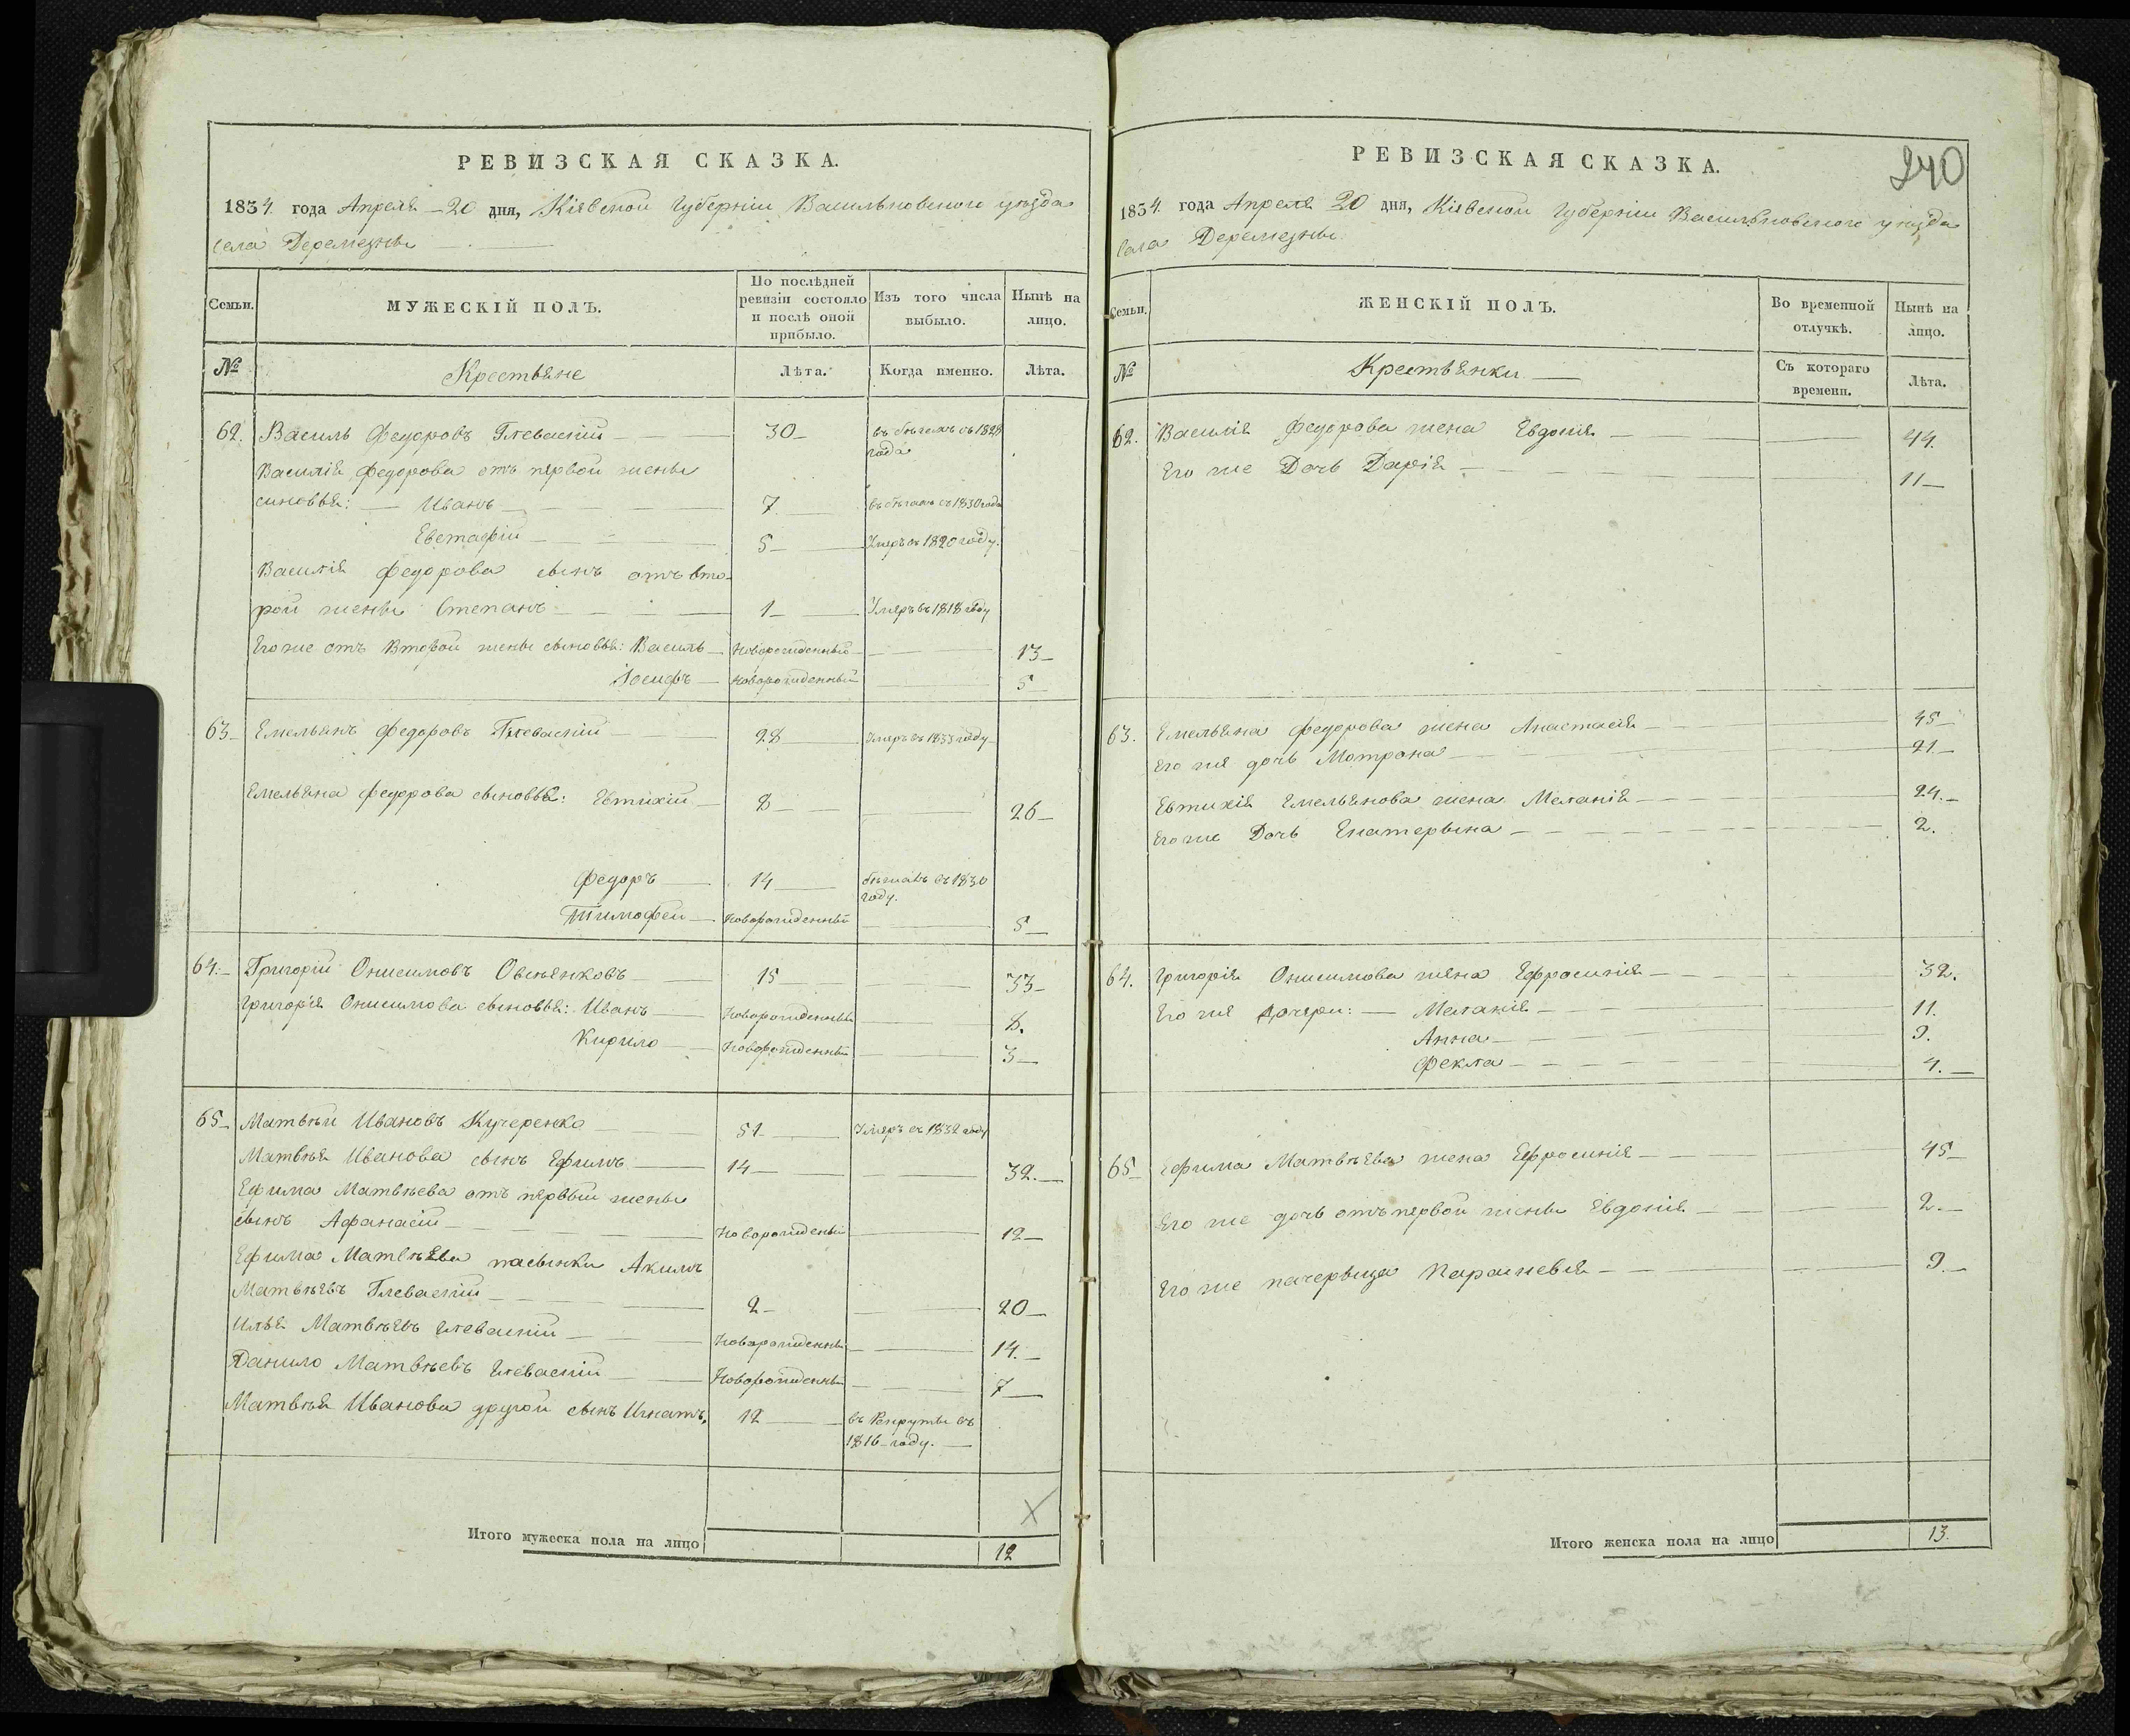 РЕВИЗСКАЯ СКАЗКА.
1834. года Апреля 20 дня, Кіевской Губерніи Васильковского уезда
села Деремезны
Семьи.
МУЖЕСКІЙ ПОЛЪ.
По послѣдней ревизіи состояло и послѣ оной прибыло.
Изъ того числа выбыло.
Нынѣ на лицо.
№
Крестьяне
Лѣта.
Когда именно.
Лѣта.
62. Василь Федоровъ Глеваскій 30 въ бѣгахъ съ 1828 года
Василія Федорова отъ первой жены
синовья: Иванъ 7 въ бѣгахъ съ 1830 года
Евстафій 5 Умеръ въ 1820 году.
Василія Федорова сынъ отъ вто-
рой жены Степанъ 1 Умеръ въ 1818 году
Его же отъ второй жены сыновья: Василь новорожденный 13
Іосифъ новорожденный 5
63 Емельянъ Федоровъ Глеваскій 28 Умеръ въ 1833 году
Емельяна Федорова сыновья: Евтихій 8 26
Федоръ 14 бѣжавъ въ 1830 году.
Тимофей новорожденный 5
64. Григорій Онисимовъ Овсѣенковъ 15 33
Григорія Онисимова сыновья: Иванъ Новорожденный 8.
Кирило Новорожденный 3
65 Матвѣй Ивановъ Кучеренко 51 Умеръ въ 1832 году
Матвѣя Иванова сынъ Ефимъ 14 32.
Ефима Матвѣева отъ первый жены
сынъ Афанасій Новорожденый 12
Ефима Матвѣева пасынки Акимъ
Матвѣевъ Глеваскій 2 20
Илья Матвѣевъ Глеваскій Новорожденный 14.
Данило Матвѣевъ Глеваскій Новорожденный 7
Матвѣя Иванова другой сынъ Игнатъ, 12 въ Рекруты въ
1816 году.
Итого мужеска пола на лицо 12
РЕВИЗСКАЯ СКАЗКА.
240
1834. года Апреля 20 дня, Кіевской Губерніи Васильковского уезда
села Деремезны.
Семьи.
ЖЕНСКІЙ ПОЛЪ.
Во временной отлучкѣ.
Нынѣ на лицо.
№
Крестьянки
Съ котораго времени.
Лѣта.
62. Василія Федорова жена Евдокія 44.
Его же Дочь Дарія 11
63. Емельяна Федорова жена Анастасія 45
Его же дочь Мотрона 21.
Евтихія Емельянова жена Меланія 24.
Его же Дочь Екатерына 2.
64. Григорія Онисимова жена Ефросинія 32.
Его же дочери: Меланія 11.
Анна 9.
Фекла 4.
65 Ефима Матвѣева жена Ефросинія 45
Его же дочь отъ первой жены Евдокія 2.
Его же пачерыца Параскевія 9.
Итого женска пола на лицо 13.